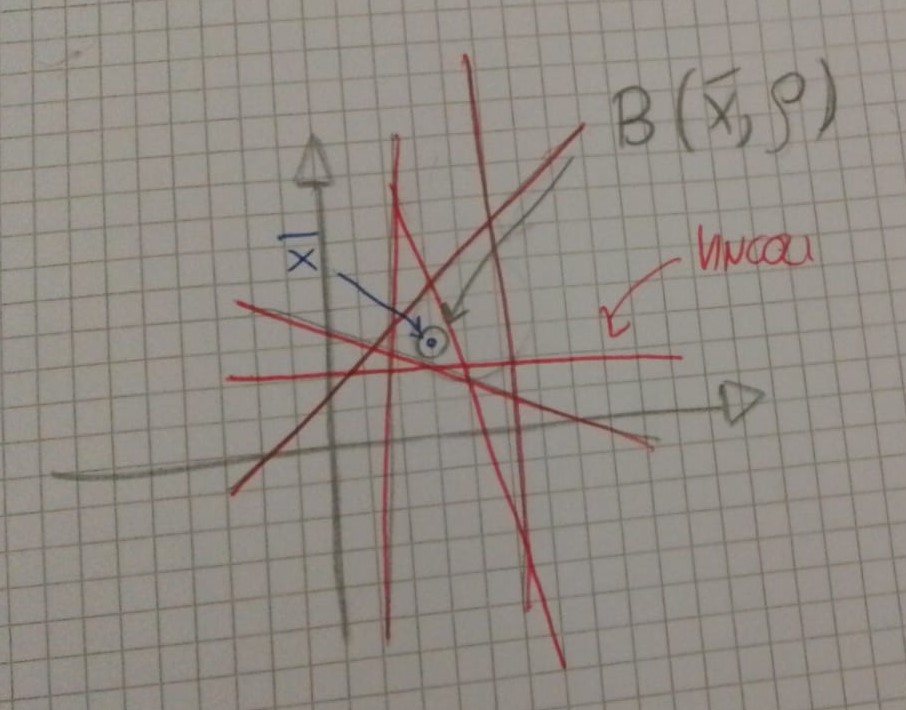 B(x̄, ρ)
x̄
VINCOLI